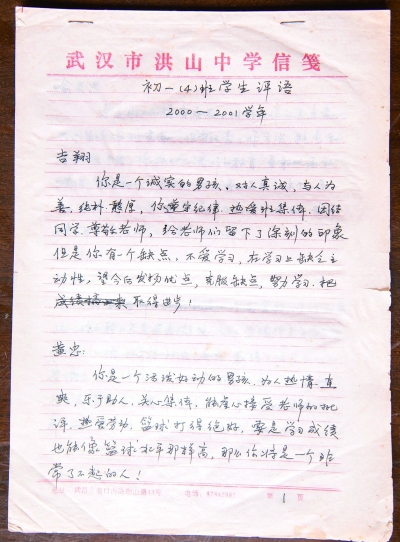 武汉市洪山中学信笺
初一(4)班学生评语
2000—2001学年
吉翔
你是一个诚实的男孩、对人真诚，与人为
善，纯朴憨厚，你遵守纪律，热爱班集体，团结
同学，尊敬老师，给老师们留下了深刻的印象
但是你有一个缺点，不爱学习，在学习上缺乏主
动性，望今后发扬优点，克服缺点，努力学习，把
取得进步！
黄忠：
你是一个活泼好动的男孩，为人热情、直
爽，乐于助人，关心集体，能虚心接受老师的批
评，热爱劳动，篮球打得绝好，要是学习成绩
也能像篮球水平那样高，那么你将是一个非
常了不起的人！
电话：
第 1 页